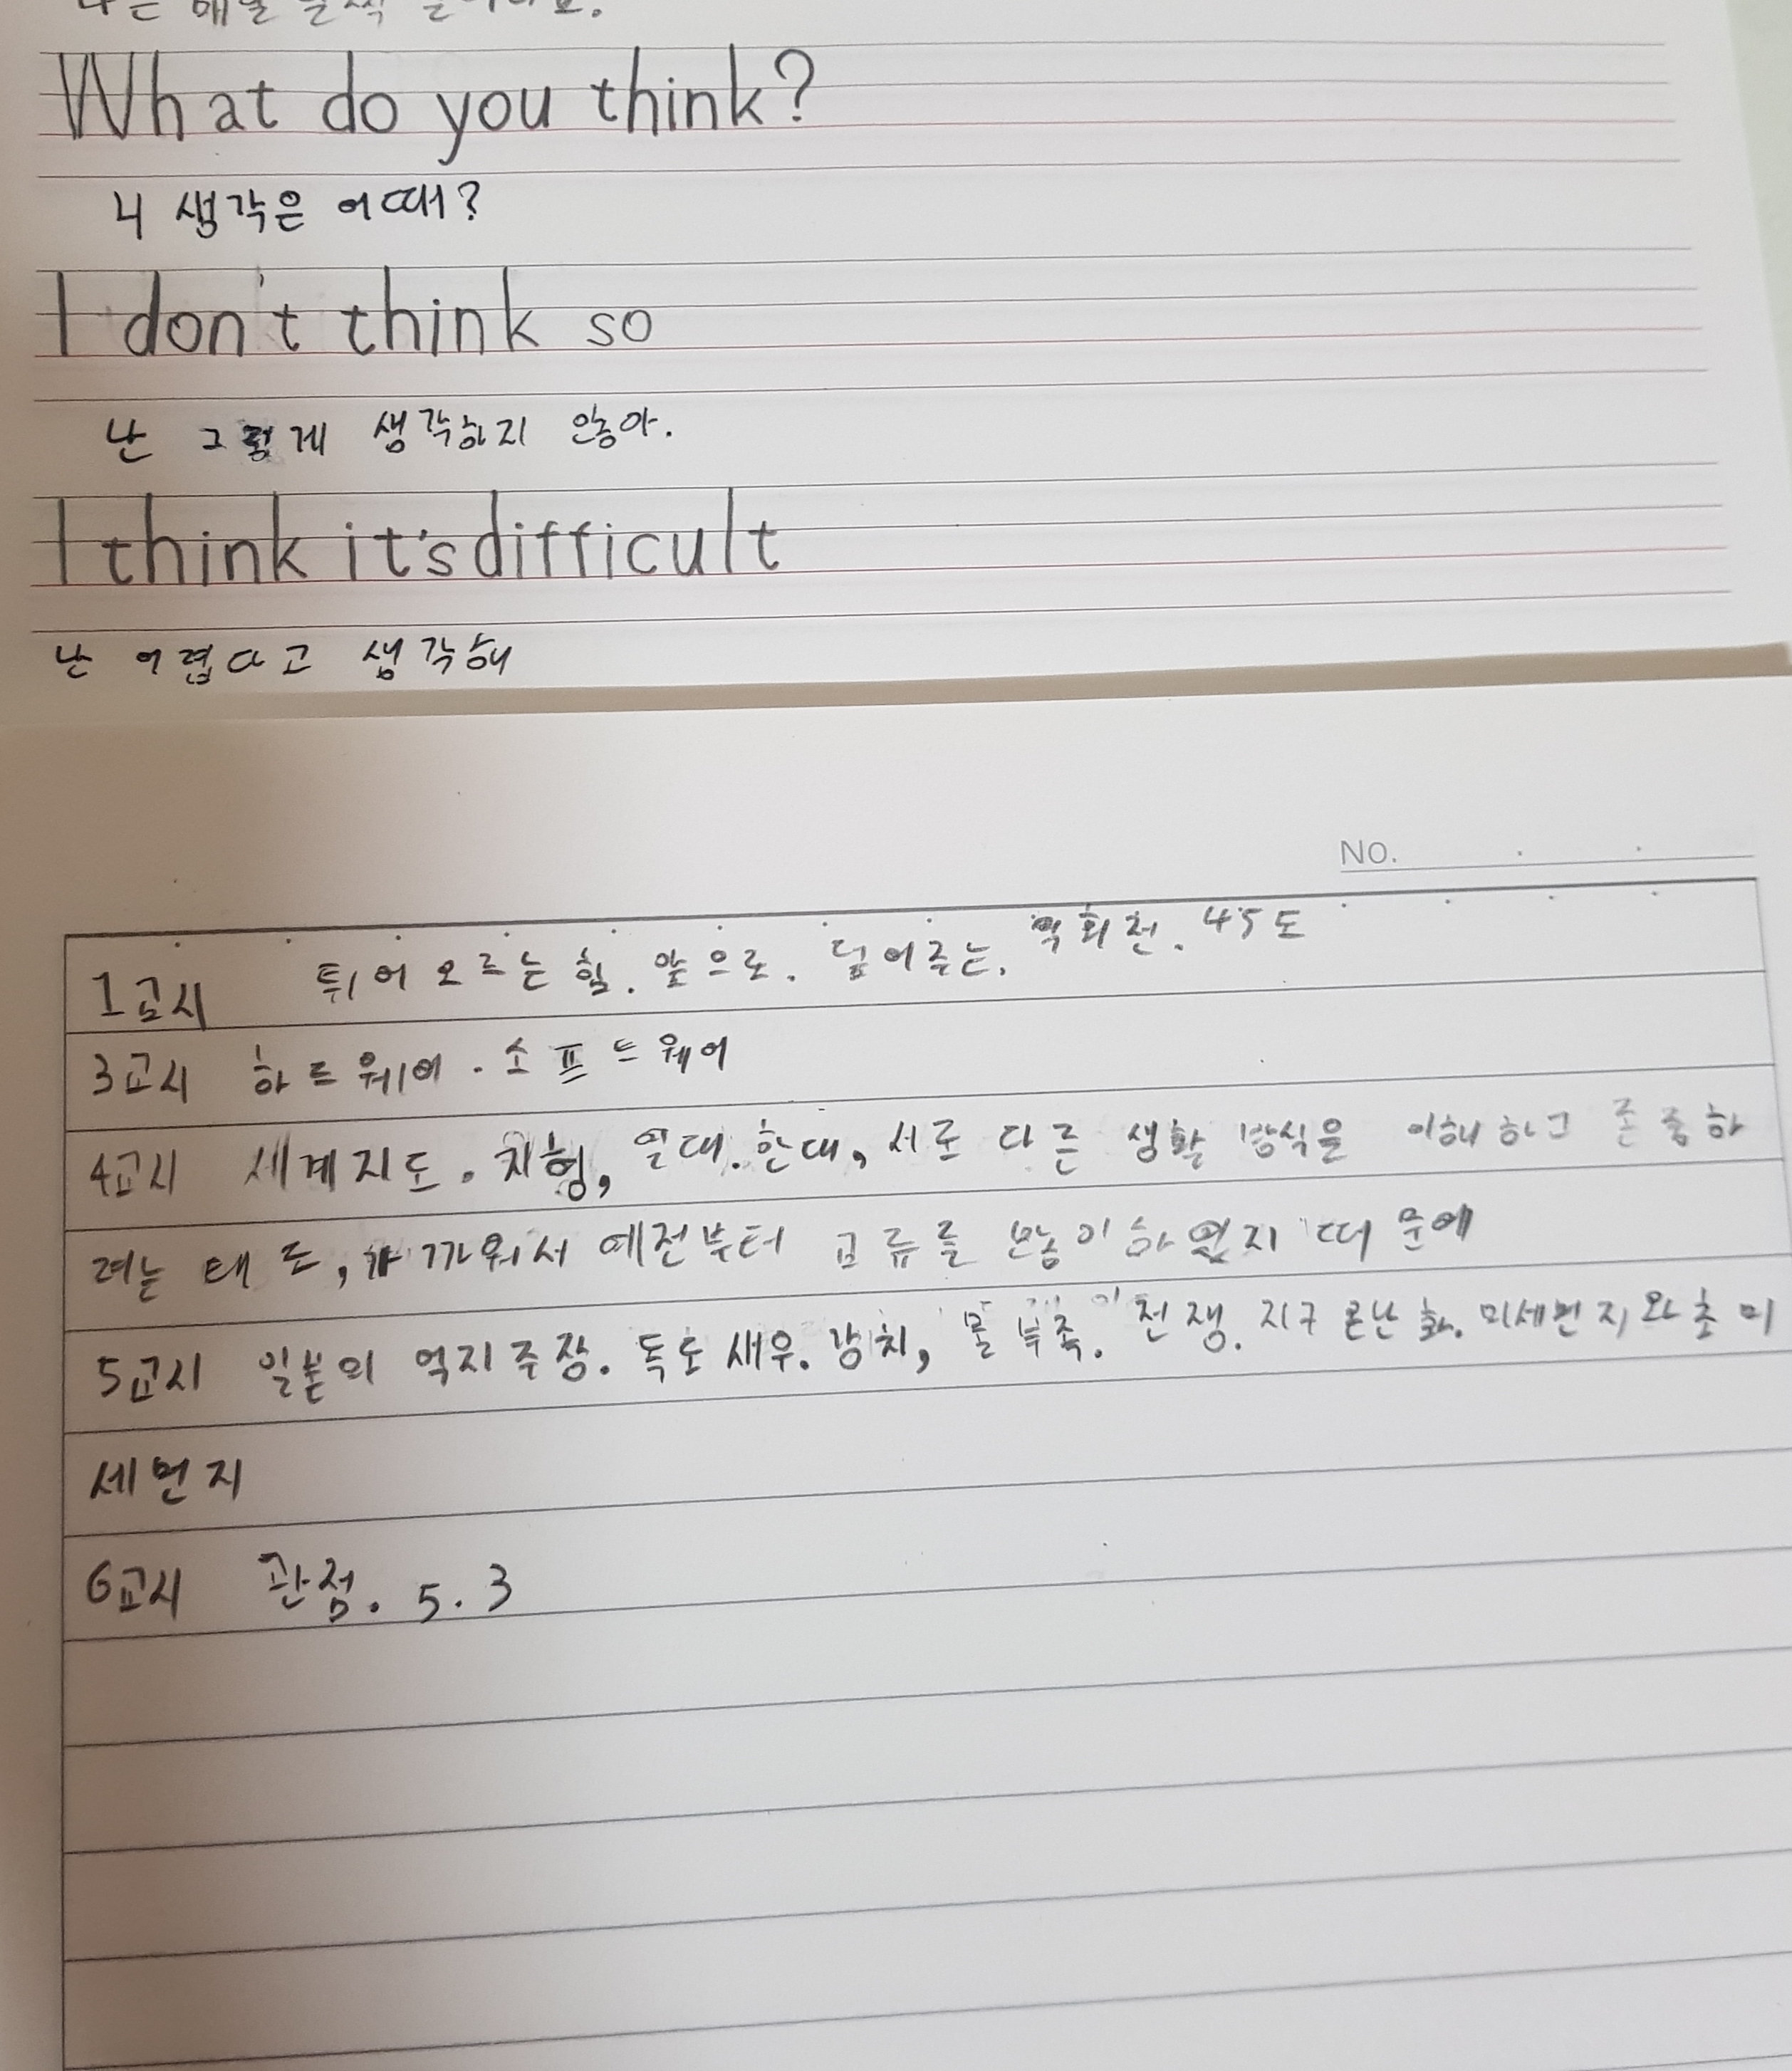 What do you think?
니 생각은 어때?
I don't think so
난 그렇게 생각하지 않아.
I think it's difficult
난 어렵다고 생각해
NO.
1교시 튀어 오르는 힘. 앞으로. 넘어주는. 역회전. 45도
3교시 하드웨어. 소프트웨어
4교시 세계지도. 지형, 열대. 한대, 서로 다른 생활 방식을 이해하고 존중하
려는 태도, 가까워서 예전부터 교류를 많이 하였지 때문에
5교시 일본의 억지주장. 독도새우. 강치, 물 부족. 전쟁. 지구 온난화. 미세먼지와 초미
세먼지
6교시 관점. 5.3